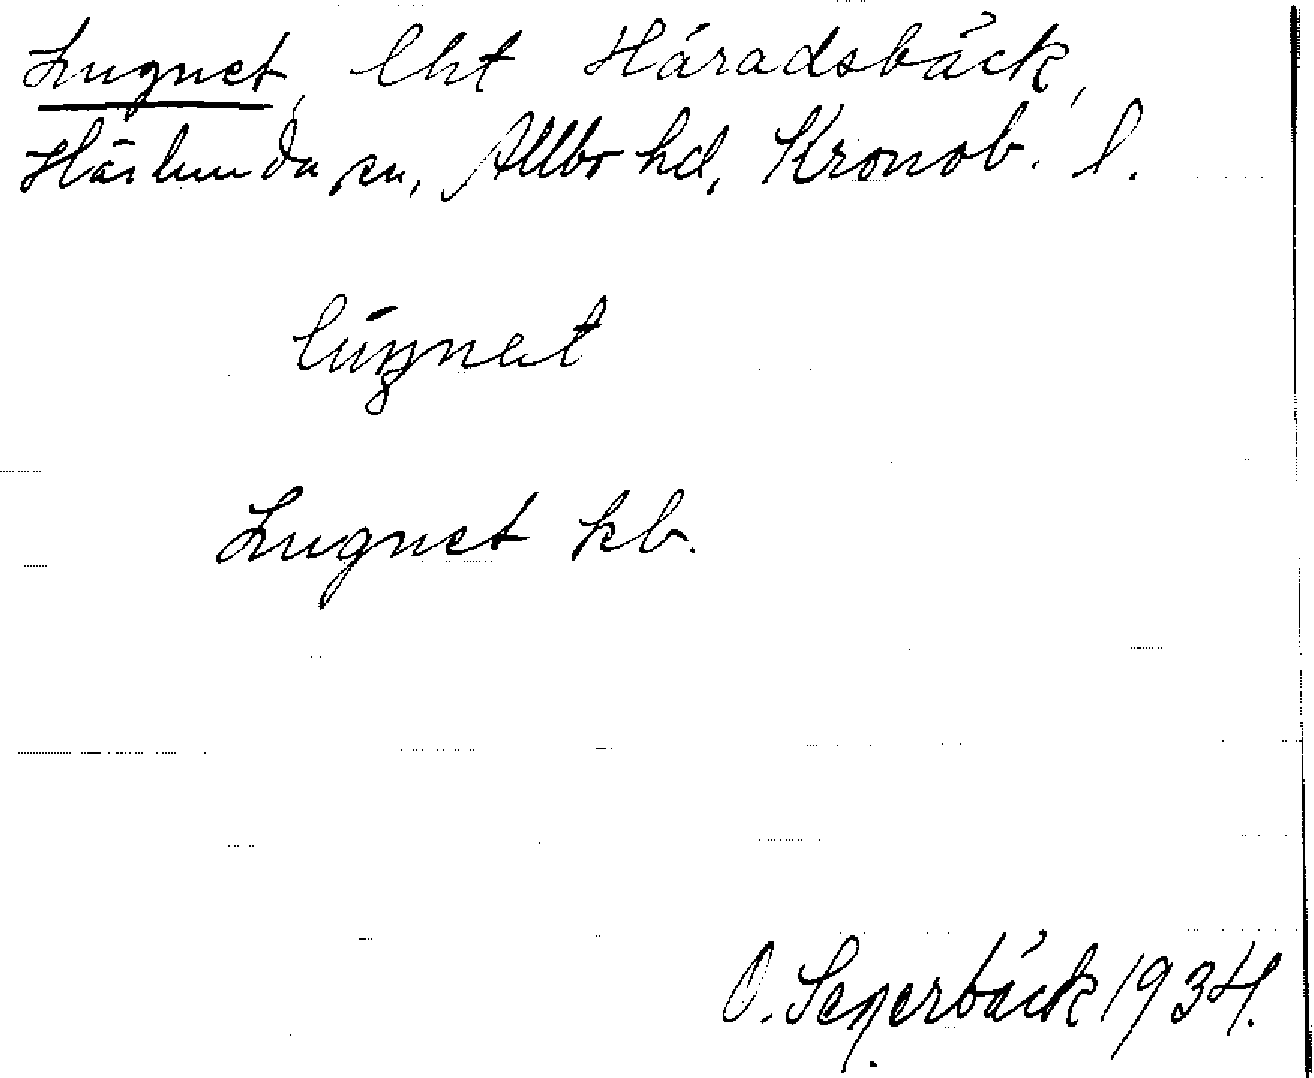 Lugnet, lht Häradsbäck,
Härlunda sn, Allbo hd, Kronob. l.
lúŋnət
Lugnet kb.
O. Senerbäck 1934.